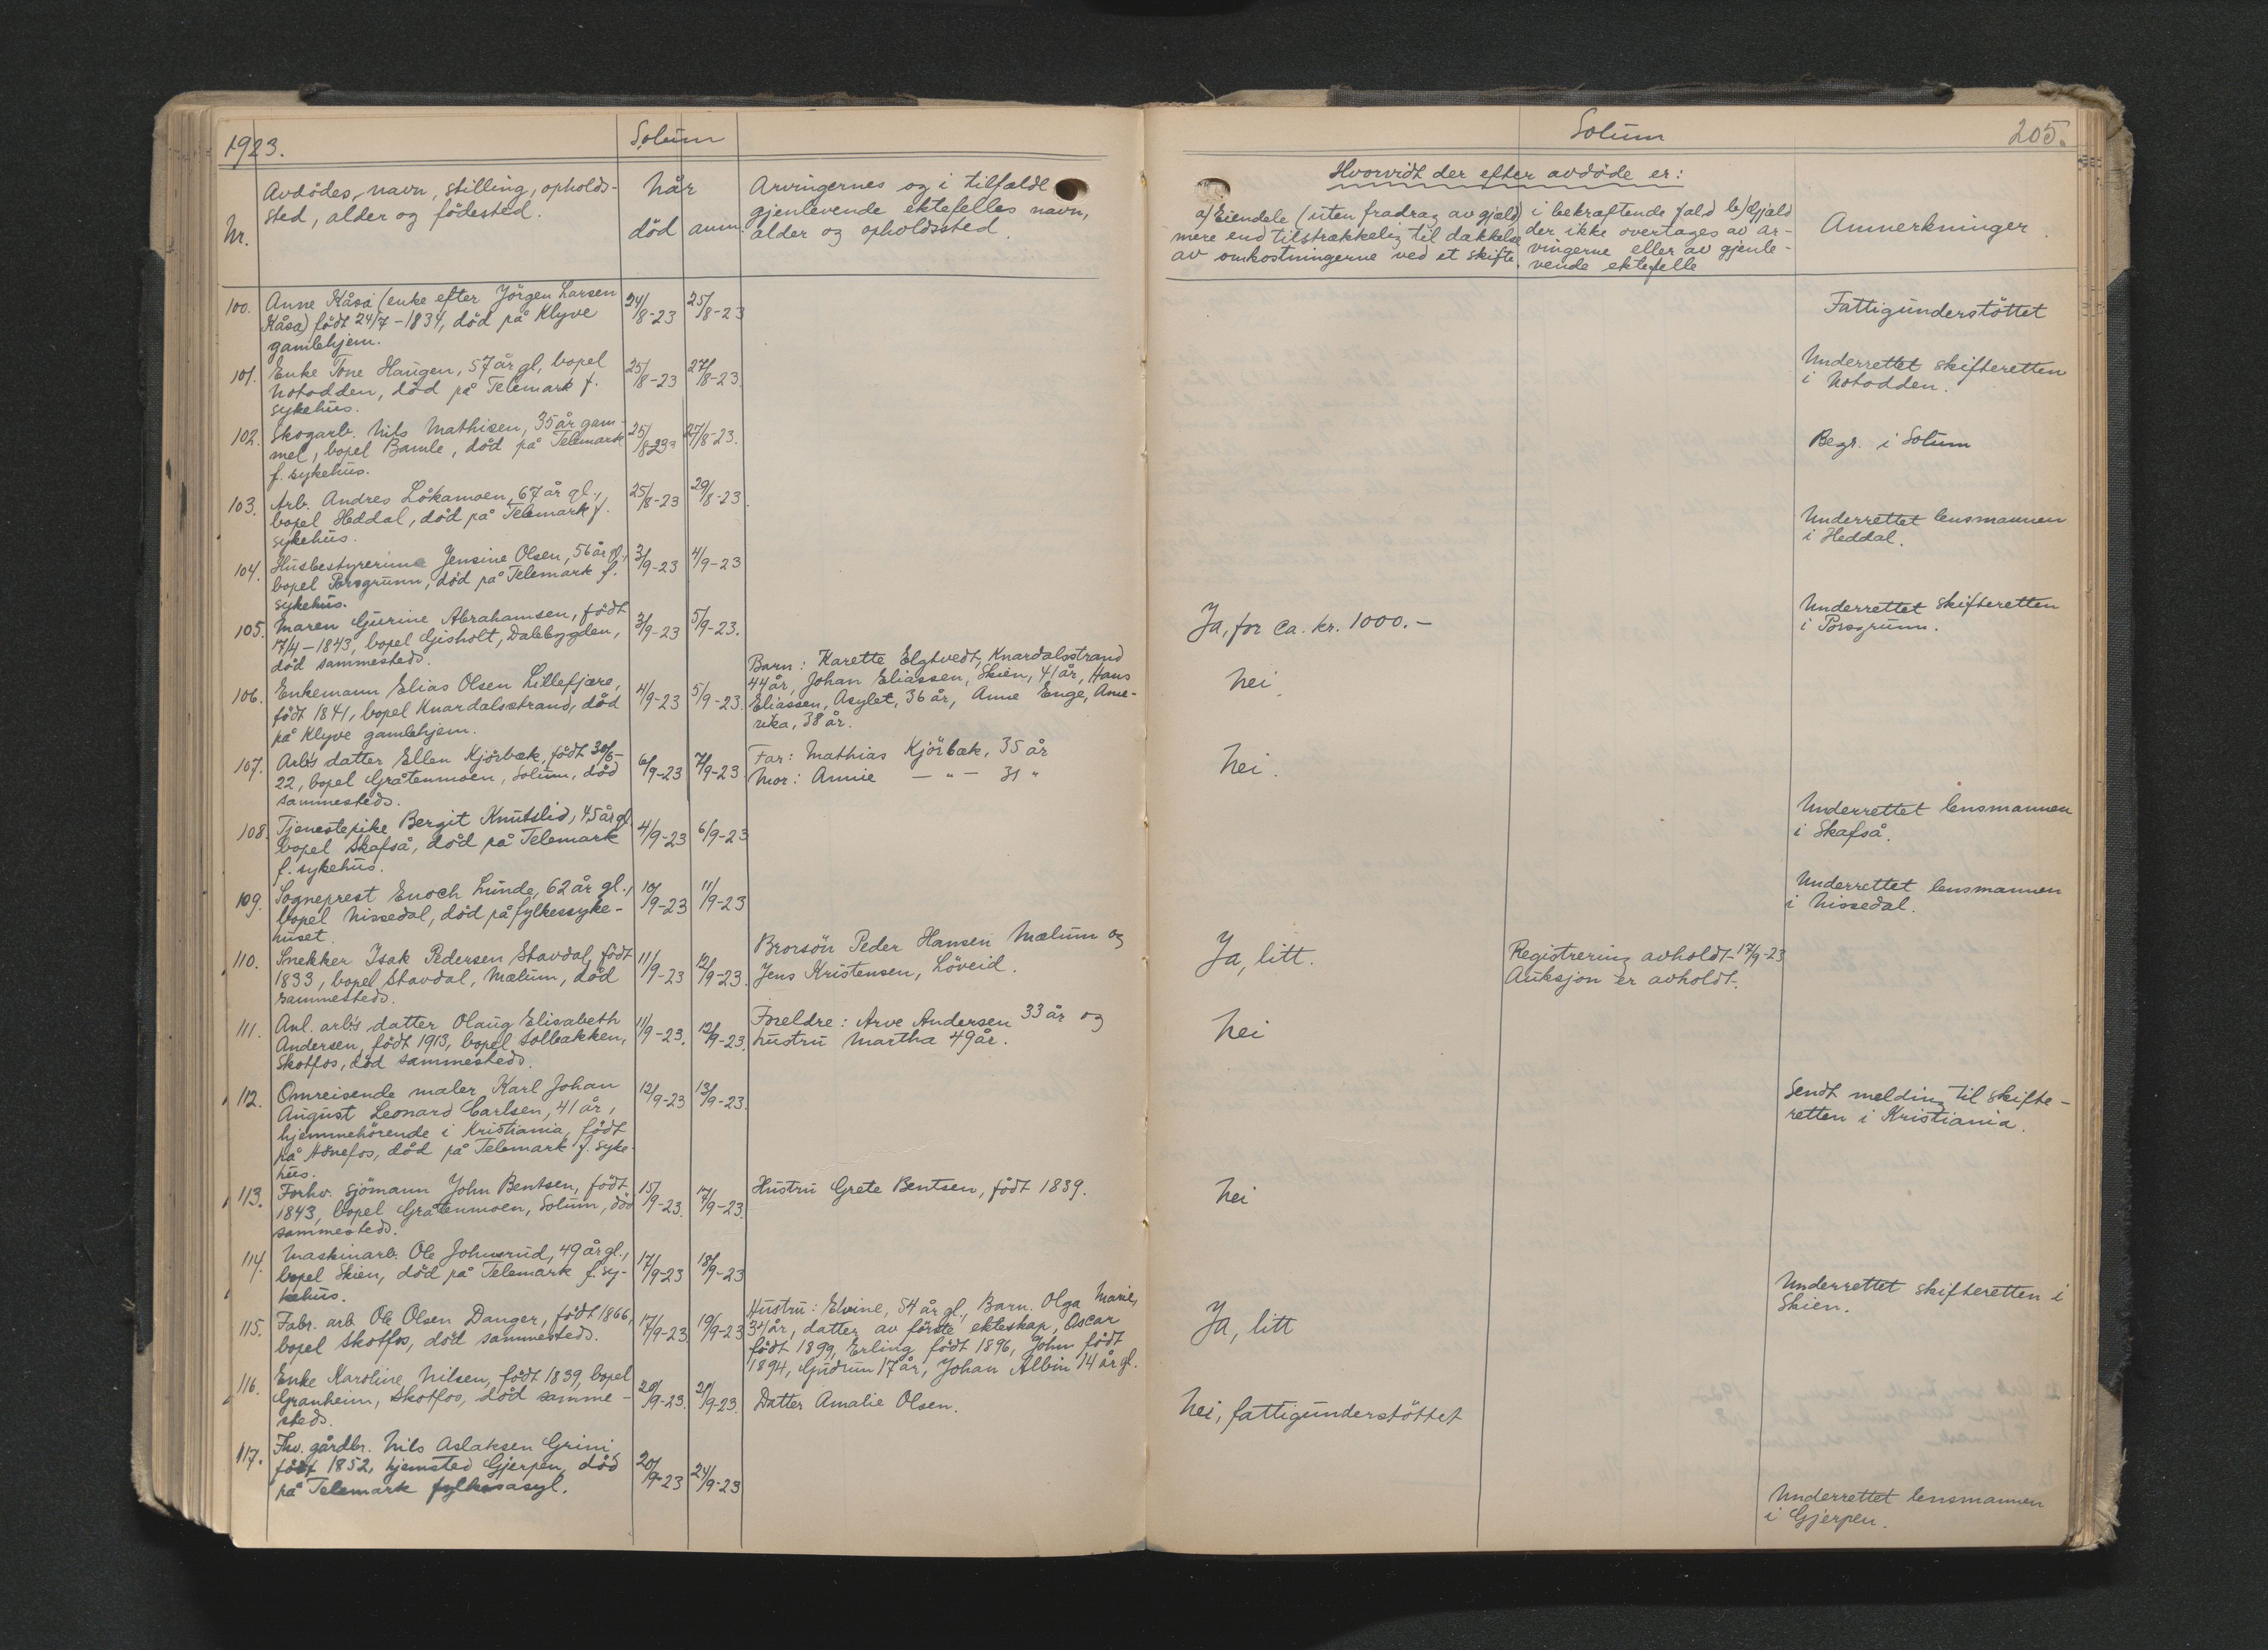 1923.
Solum
Nr.
Avdödes navn, stilling, opholds-
sted, alder og födested.
når
död
anm.
Arvingernes og i tilfælde
gjenlevende ektefelles navn,
alder og opholdssted.
100.
Anne Kåsa (enke efter Jörgen Larsen
Kåsa) födt 24/7-1834, död på Klyve
gamlehjem.
24/8-23
25/8-23
101.
Enke Tone Haugen, 57 år gl, bopel
Notodden, död på Telemark f.
sykehus.
25/8-23
27/8-23.
102.
Skogarb. Nils Mathisen, 35 år gam-
mel, bopel Bamle, död på Telemark
f. sykehus.
25/8-23
27/8-23.
103.
Arb. Andres Lökamoen, 67 år gl.,
bopel Heddal, död på Telemark f.
sykehus.
25/8-23
29/8-23.
104.
Husbestyrerinne Jensine Olsen, 56 år gl.,
bopel Porsgrunn, död på Telemark f.
sykehus.
3/9-23
4/9-23
105.
Maren Gurine Abrahamsen, födt
17/4-1843, bopel Gisholt, Dalsbygden,
död sammesteds.
3/9-23
5/9-23.
106.
Enkemann Elias Olsen Lillefjære,
födt 1841, bopel Knardalsstrand, död
på Klyve gamlehjem.
4/9-23
5/9-23.
Barn: Karette Elgtvedt, Knardalsstrand
44 år, Johan Eliassen, Skien, 41 år, Hans
Eliassen, Asylet, 36 år, Anne Enge, Ame-
rika, 38 år.
107.
Arb's datter Ellen Kjörbæk, födt 30/6-
22, bopel Gråtenmoen, Solum, död
sammesteds.
6/9-23
7/9-23
Far: Mathias Kjörbæk, 35 år
Mor: Annie — " — 31 "
108.
Tjenestepike Bergit Knutslid, 45 år gl.
bopel Skafså, död på Telemark
f. sykehus.
4/9-23
6/9-23
109.
Sogneprest Enoch Lunde, 62 år gl.,
bopel Nissedal, död på fylkessyke-
huset.
10/9-23
11/9-23
110.
Snekker Isak Pedersen Stavdal, födt
1833, bopel Stavdal, Mælum, död
sammesteds.
11/9-23
12/9-23.
Brorsön Peder Hansen Mælum og
Jens Kristensen, Löveid.
111.
Anl. arb's datter Olaug Elisabeth
Andersen, födt 1913, bopel Solbakken,
Skotfos, död sammesteds.
11/9-23.
12/9-23.
Foreldre: Arve Andersen 33 år og
hustru Martha 49 år.
112.
Omreisende maler Karl Johan
August Leonard Carlsen, 41 år,
hjemmehörende i Kristiania, födt
på Hönefos, död på Telemark f. syke-
hus.
12/9-23
13/9-23.
113.
Forhv. sjömann John Bentsen, födt
1843, bopel Gråtenmoen, Solum, död
sammesteds.
15/9-23.
17/9-23.
Hustru Grete Bentsen, födt 1839.
114.
Maskinarb. Ole Johnsrud, 49 år gl.,
bopel Skien, död på Telemark f. sy-
kehus.
17/9-23
18/9-23
115.
Fabr. arb Ole Olsen Danger, födt 1866,
bopel Skotfos, död sammesteds.
17/9-23
19/9-23
Hustru: Elvine, 54 år gl., Barn. Olga Marie,
34 år, datter av förste ekteskap, Oscar
födt 1899, Erling födt 1896, John födt
1894, Gudrun 17 år, Johan Albin 14 år gl.
116.
Enke Karoline Nilsen, födt 1839, bopel
Granheim, Skotfos, död samme-
steds.
20/9-23.
21/9-23.
Datter Amalie Olsen.
117.
Fhv. gårdbr. Nils Aslaksen Grini
födt 1852, hjemsted Gjerpen, död
på Telemark fylkesasyl.
20/9-23
24/9-23
Solum
205.
Hvorvidt der efter avdöde er:
a) Eiendele (uten fradrag av gjæld)
mere end tilstrækkelig til dækkelse
av omkostningerne ved et skifte.
i bekræftende fald b) Gjæld
der ikke overtages av ar-
vingerne eller av gjenle-
vende ektefelle
Anmerkninger.
Fattigunderstöttet
Underrettet skifteretten
i Notodden.
Begr. i Solum
Underrettet lensmannen
i Heddal.
Underrettet skifteretten
i Porsgrunn.
Ja, for ca. kr. 1000.-
Nei.
Nei.
Underrettet lensmannen
i Skafså.
Underrettet lensmannen
i Nissedal.
Ja, litt.
Registrering avholdt 17/9-23
Auksjon er avholdt.
Nei
Sendt melding til skifte-
retten i Kristiania.
Nei
Underrettet skifteretten i
Skien.
Ja, litt
Nei, fattigunderstöttet
Underrettet lensmannen
i Gjerpen.